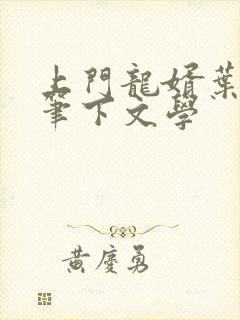 上門龍婿葉
筆下文學
黃慶勇